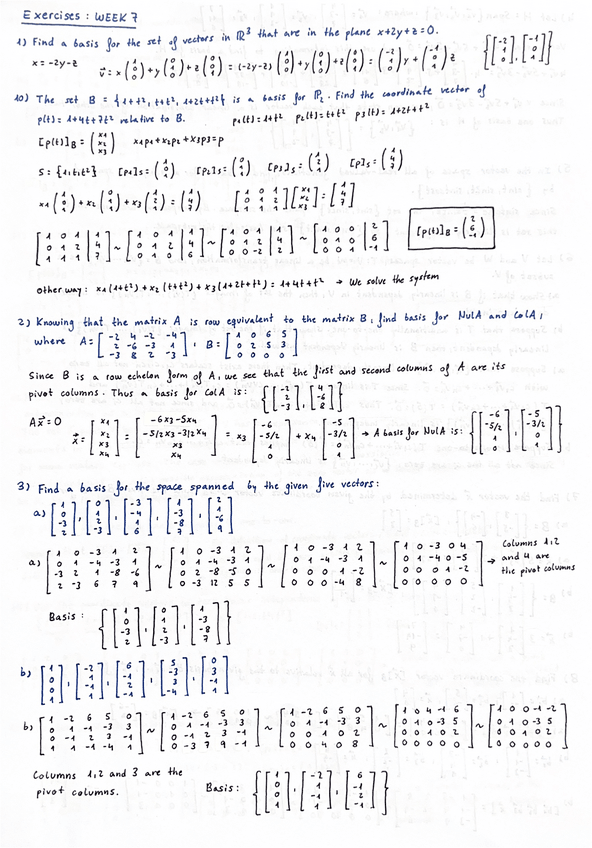 Exercises: WEEK 7
1) Find a basis for the set of vectors in ℝ³ that are in the plane x+2y+z=0.
x = -2y-z   v⃗ = x(1 0 0) + y(0 1 0) + z(0 0 1) = (-2y-z)(1 0 0) + y(0 1 0) + z(0 0 1) = (-2 1 0)y + (-1 0 1)z   {[-2 1 0], [-1 0 1]}
10) The set B = {1+t², t+t², 1+2t+t²} is a basis for ℙ₂. Find the coordinate vector of
p(t) = 1+4t+7t² relative to B.   p1(t)=1+t²   p2(t)=t+t²   p3(t)=1+2t+t²
[p(t)]B = (x1 x2 x3)   x1p1+x2p2+x3p3=p
S = {1,t,t²}   [p1]s = (1 0 1)   [p2]s = (0 1 1)   [p3]s = (1 2 1)   [p]s = (1 4 7)
x1(1 0 1) + x2(0 1 1) + x3(1 2 1) = (1 4 7)   [1 0 1; 0 1 2; 1 1 1][x1 x2 x3] = [1 4 7]
[1 0 1 | 1; 0 1 2 | 4; 1 1 1 | 7] ~ [1 0 1 | 1; 0 1 2 | 4; 0 1 0 | 6] ~ [1 0 1 | 1; 0 1 2 | 4; 0 0 -2 | 2] ~ [1 0 0 | 2; 0 1 0 | 6; 0 0 1 | -1]   [p(t)]B = (2 6 -1)
Other way: x1(1+t²) + x2(t+t²) + x3(1+2t+t²) = 1+4t+t² → We solve the system
2) Knowing that the matrix A is row equivalent to the matrix B, find basis for NulA and ColA,
where A = [-2 4 -2 -4; 2 -6 -3 1; -3 8 2 -3], B = [1 0 6 5; 0 2 5 3; 0 0 0 0]
Since B is a row echelon form of A, we see that the first and second columns of A are its
pivot columns. Thus a basis for ColA is: {[-2 2 -3], [4 -6 8]}
Ax⃗=0   x⃗ = [x1 x2 x3 x4] = [-6x3-5x4; -5/2x3-3/2x4; x3; x4] = x3[-6 -5/2 1 0] + x4[-5 -3/2 0 1] → A basis for NulA is: {[-6 -5/2 1 0], [-5 -3/2 0 1]}
3) Find a basis for the space spanned by the given five vectors:
a) [1 0 -3 2], [0 1 2 -3], [-3 -4 1 6], [1 -3 -8 7], [2 1 -6 9]
a) [1 0 -3 1 2; 0 1 -4 -3 1; -3 2 1 -8 -6; 2 -3 6 7 9] ~ [1 0 -3 1 2; 0 1 -4 -3 1; 0 2 -8 -5 0; 0 -3 12 5 5] ~ [1 0 -3 1 2; 0 1 -4 -3 1; 0 0 0 1 -2; 0 0 0 -4 8] ~ [1 0 -3 0 4; 0 1 -4 0 -5; 0 0 0 1 -2; 0 0 0 0 0] → Columns 1,2 and 4 are the pivot columns
Basis: {[1 0 -3 2], [0 1 2 -3], [1 -3 -8 7]}
b) [1 0 0 1], [-2 1 -1 1], [6 -1 2 -1], [5 -3 3 -4], [0 3 -1 1]
b) [1 -2 6 5 0; 0 1 -1 -3 3; 0 -1 2 3 -1; 1 1 -1 -4 1] ~ [1 -2 6 5 0; 0 1 -1 -3 3; 0 -1 2 3 -1; 0 -3 7 9 -1] ~ [1 -2 6 5 0; 0 1 -1 -3 3; 0 0 1 0 2; 0 0 4 0 8] ~ [1 0 4 -1 6; 0 1 0 -3 5; 0 0 1 0 2; 0 0 0 0 0] ~ [1 0 0 -1 -2; 0 1 0 -3 5; 0 0 1 0 2; 0 0 0 0 0]
Columns 1,2 and 3 are the
pivot columns.   Basis: {[1 0 0 1], [-2 1 -1 1], [6 -1 2 -1]}